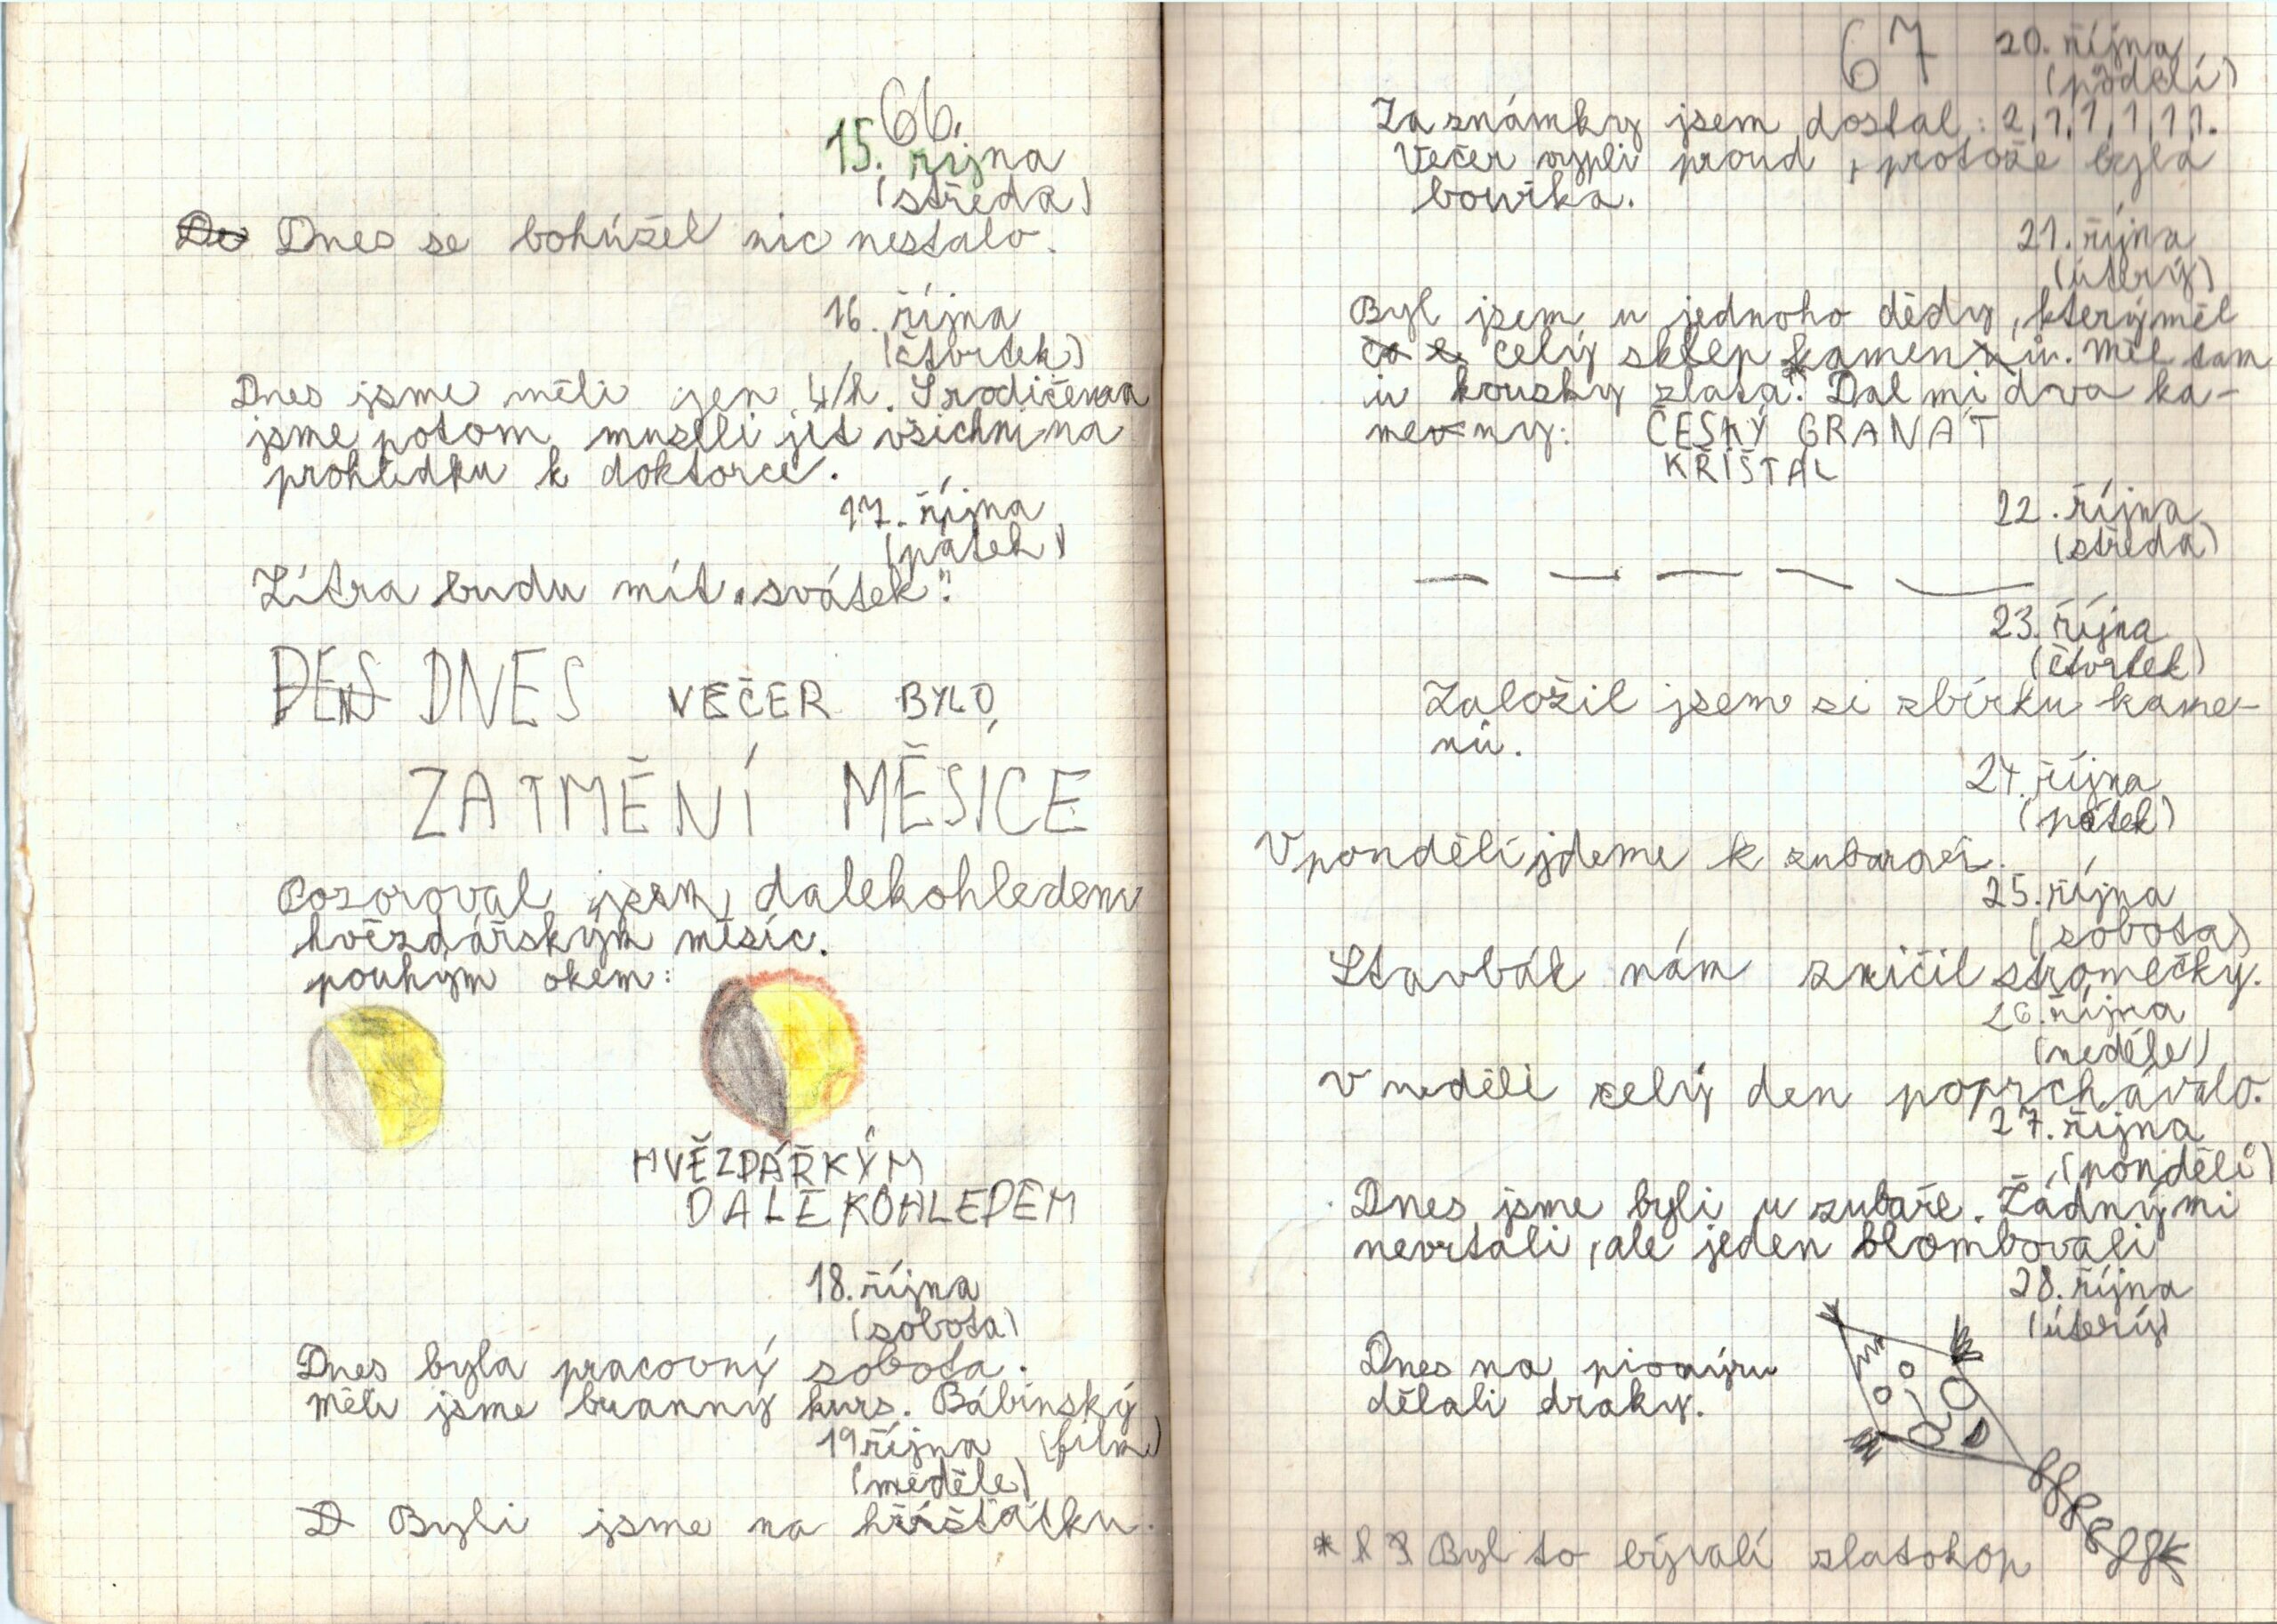 66.
15. října
(středa)
De Dnes se bohúžel nic nestalo.
16. října
(čtvrtek)
Dnes jsme měli jen 4/h. S rodičema
jsme potom museli jít všichni na
prohlídku k doktorce.
17. října
(pátek)
Zítra budu mít „svátek“.
DENS DNES VEČER BYLO
ZATMĚNÍ MĚSÍCE
Pozoroval jsem dalekohledem
hvězdářským měsíc.
pouhým okem:
HVĚZDÁŘKÝM
DALEKOHLEDEM
18. října
(sobota)
Dnes byla pracovný sobota.
Měli jsme branný kurs. Bábinský
(film)
19 října
(neděle)
D Byli jsme na hříšťátku.
67
20. října
(pondělí)
Za známky jsem dostal: 2,1,1,1,1,1.
Večer vypli proud, protože byla
bouřka.
21. října
(úterý)
Byl jsem u jednoho dědy, který měl
celý sklep kamenů. Měl tam
i kousky zlata.* Dal mi dva ka-
meny: ČESKÝ GRANÁT
KŘIŠTÁL
22. října
(středa)
— — — — —
23. října
(čtvrtek)
Založil jsem si zbírku kame-
nů.
24. října
(pátek)
V pondělí jdeme k zubarovi.
25. října
(sobota)
Stavbák nám zničil stromečky.
26. října
(neděle)
V neděli celý den poprchávalo.
27. října
(pondělí)
Dnes jsme byli u zubaře. Žádný mi
nevrtali, ale jeden blombovali
28. října
(úterý)
Dnes na pionýru
dělali draky.
* Byl to bývalí zlatokop